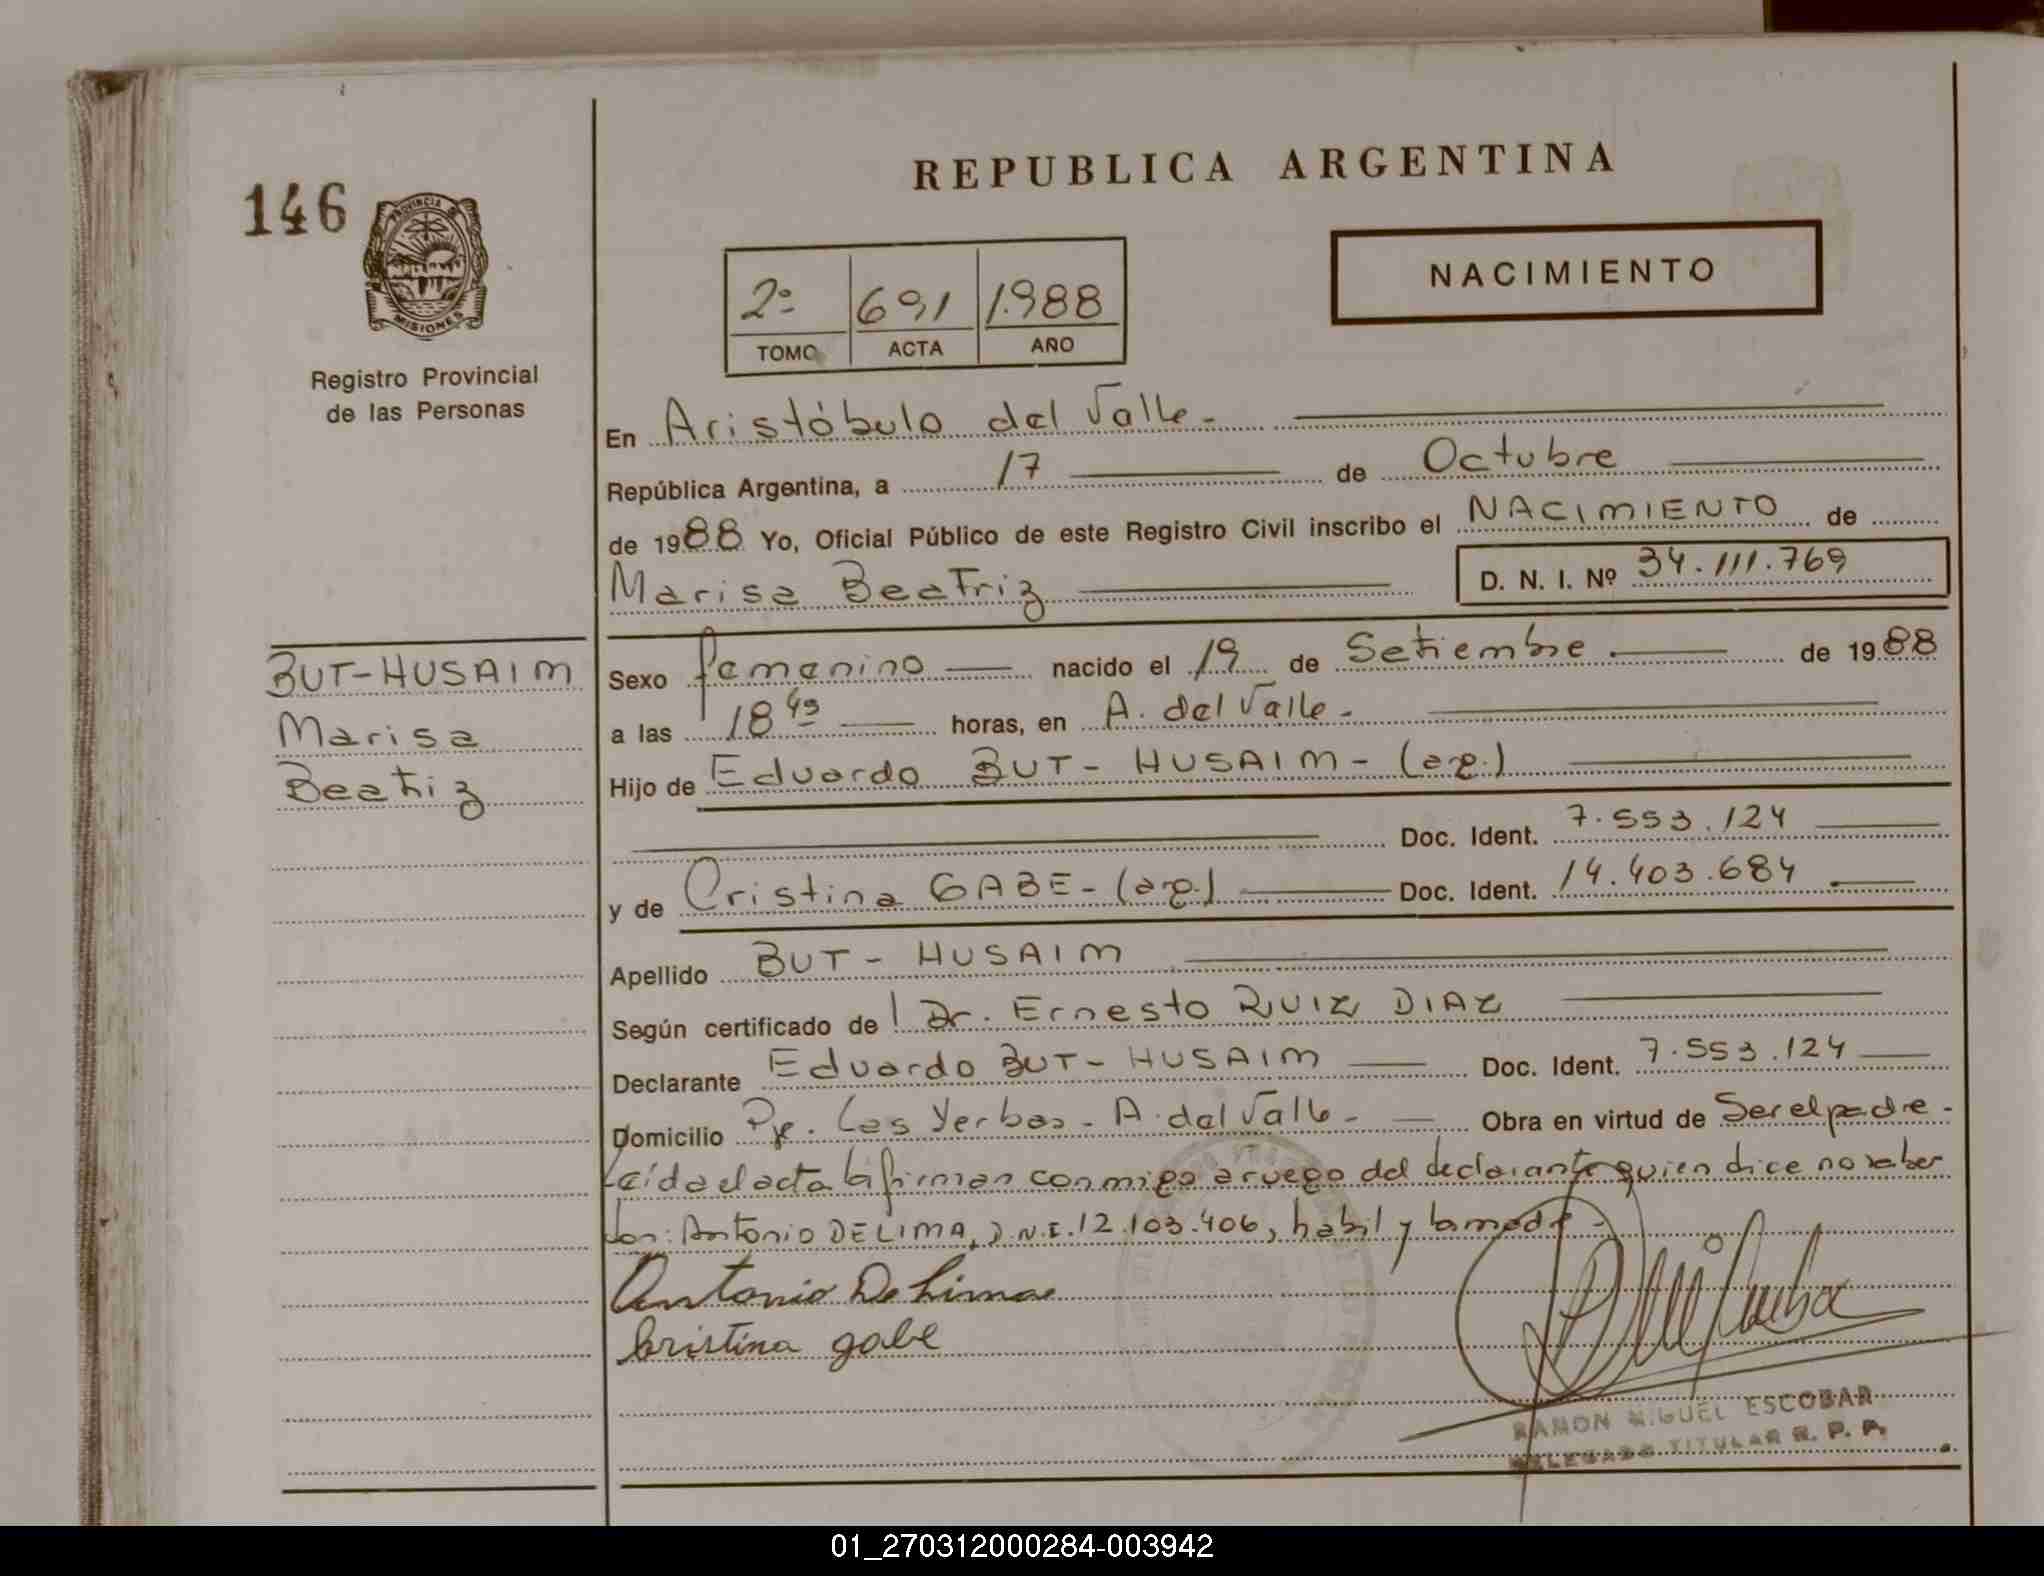 REPUBLICA ARGENTINA
146
PROVINCIA DE
MISIONES
NACIMIENTO
2º 691 1.988
TOMO ACTA AÑO
Registro Provincial
de las Personas
En Aristóbulo del Valle.
República Argentina, a 17 de Octubre
de 1988 Yo, Oficial Público de este Registro Civil inscribo el NACIMIENTO de
Marisa Beatriz D. N. I. Nº 34.111.769
BUT-HUSAIM
Marisa
Beatriz
Sexo femenino nacido el 19 de Setiembre de 1988
a las 18 45 horas, en A. del Valle.
Hijo de Eduardo BUT-HUSAIM- (arg.)
Doc. Ident. 7.553.124
y de Cristina GABE-(arg.) Doc. Ident. 14.403.684
Apellido BUT-HUSAIM
Según certificado de l Dr. Ernesto RUIZ DIAZ
Declarante Eduardo BUT-HUSAIM Doc. Ident. 7.553.124
Domicilio Pje. Las Yerbas- A. del Valle- Obra en virtud de Ser el padre-
Leída el acta la firman conmigo a ruego del declarante quien dice no saber
don: Antonio DE LIMA, D.N.I. 12.103.406, habil y la madre-
Antonio De Lima
Cristina gabe
RAMON MIGUEL ESCOBAR
DELEGADO TITULAR R. P. P.
01_270312000284-003942